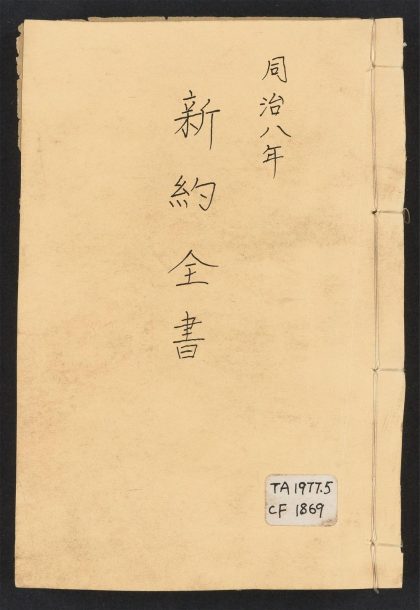 同治八年
新約全書
TA 1977.5
CF 1869